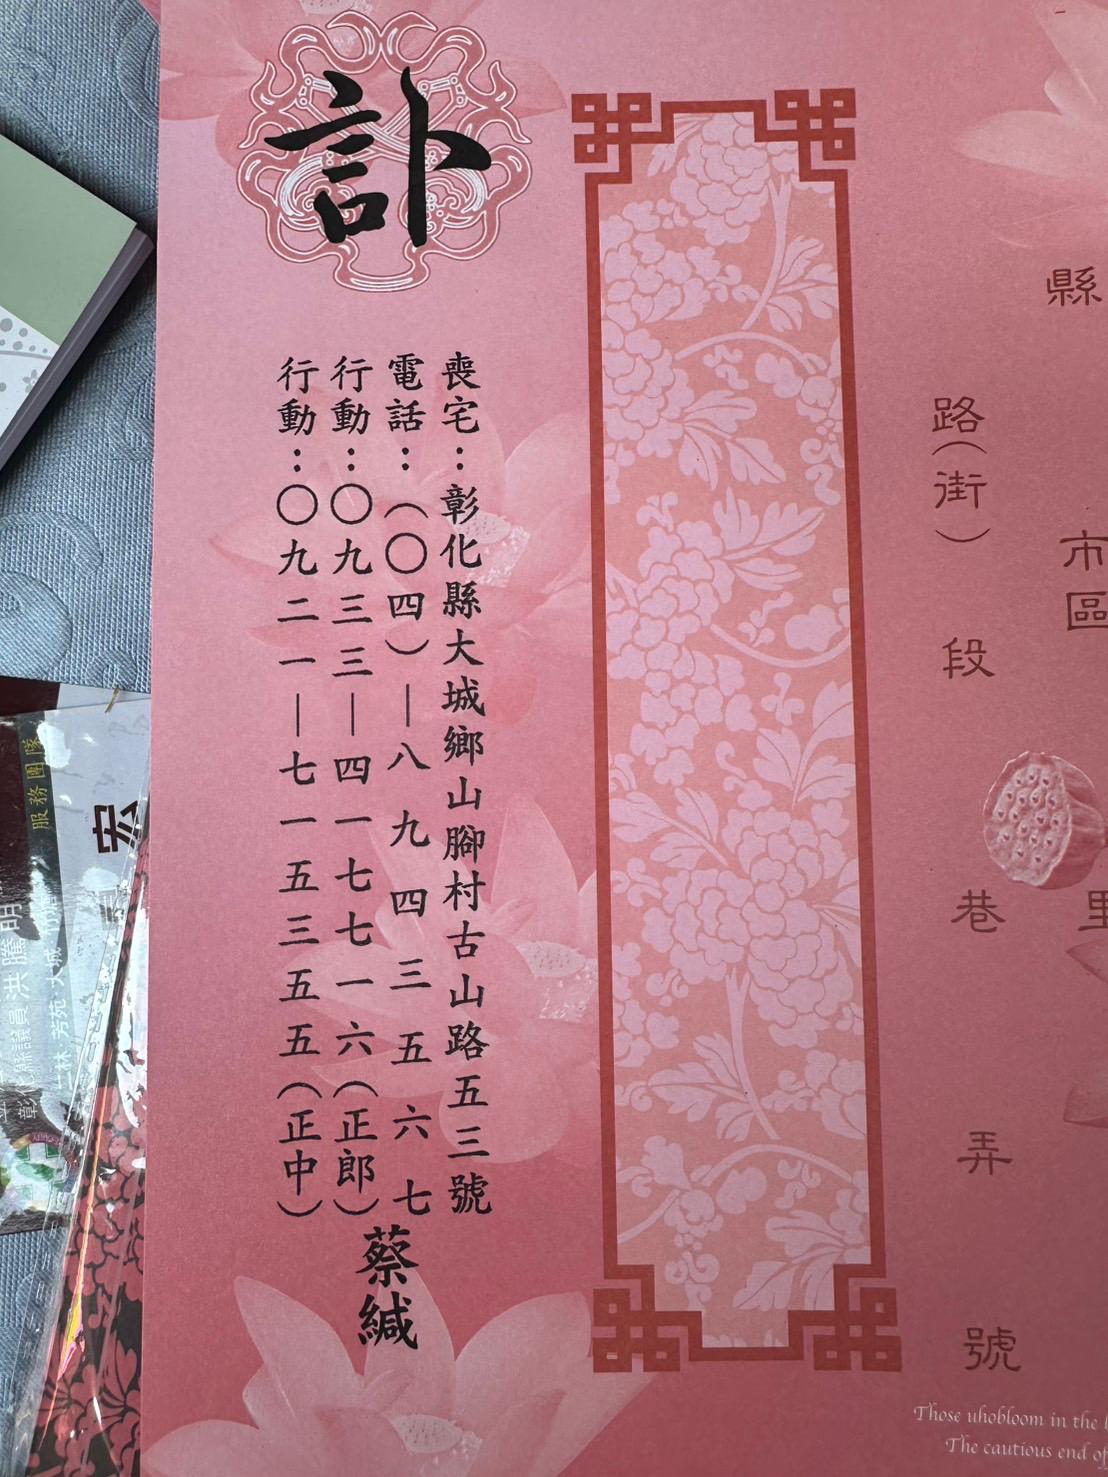 縣
市
區
里
路(街)
段
巷
弄
號
訃
喪宅：彰化縣大城鄉山腳村古山路五三號
電話：(〇四)—八九四三五六七
行動：〇九三三—四一七七一六(正郎)
行動：〇九二一—七一五三五五(正中)
蔡緘
Those uhobloom in the
The cautious end of
服務團隊
宏
縣議員洪騰明
二林 芳苑 大城